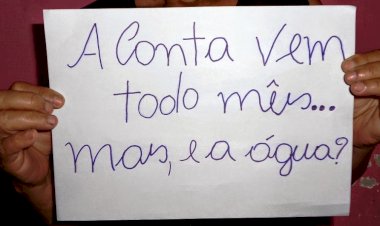 A Conta vem
todo mês...
mas, e a água?